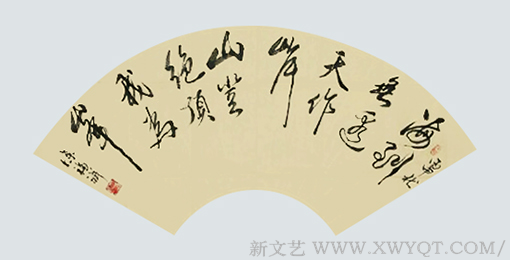 海到
無邊
天作
岸
山登
絕頂
我為
峯
新文艺 WWW.XWYQT.COM/